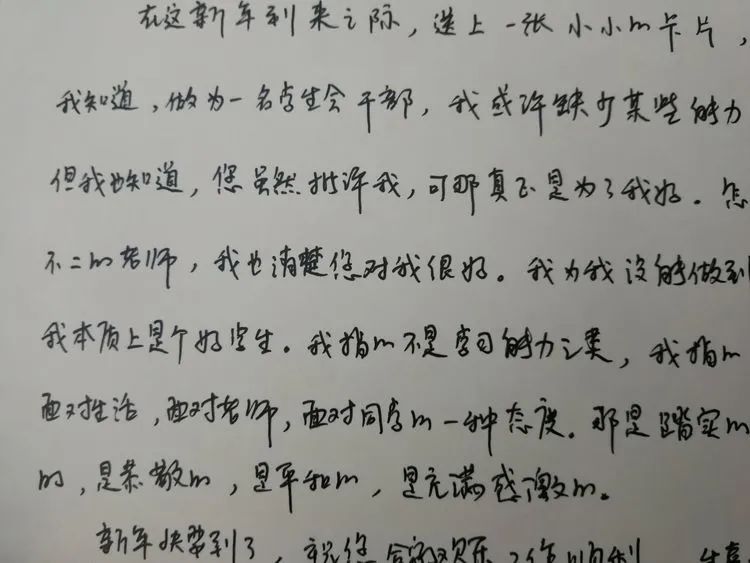 在这新年到来之际，送上一张小小的卡片，
我知道，做为一名学生会干部，我或许缺少某些能力
但我也知道，您虽然批评我，可那真正是为了我好。您
不二的老师，我也清楚您对我很好。我为我没能做到
我本质上是个好学生。我指的不是学习能力之类，我指的
面对生活，面对老师，面对同学的一种态度。那是踏实的
的，是恭敬的，是平和的，是充满感激的。
新年快要到了，祝您合家欢乐 工作顺利